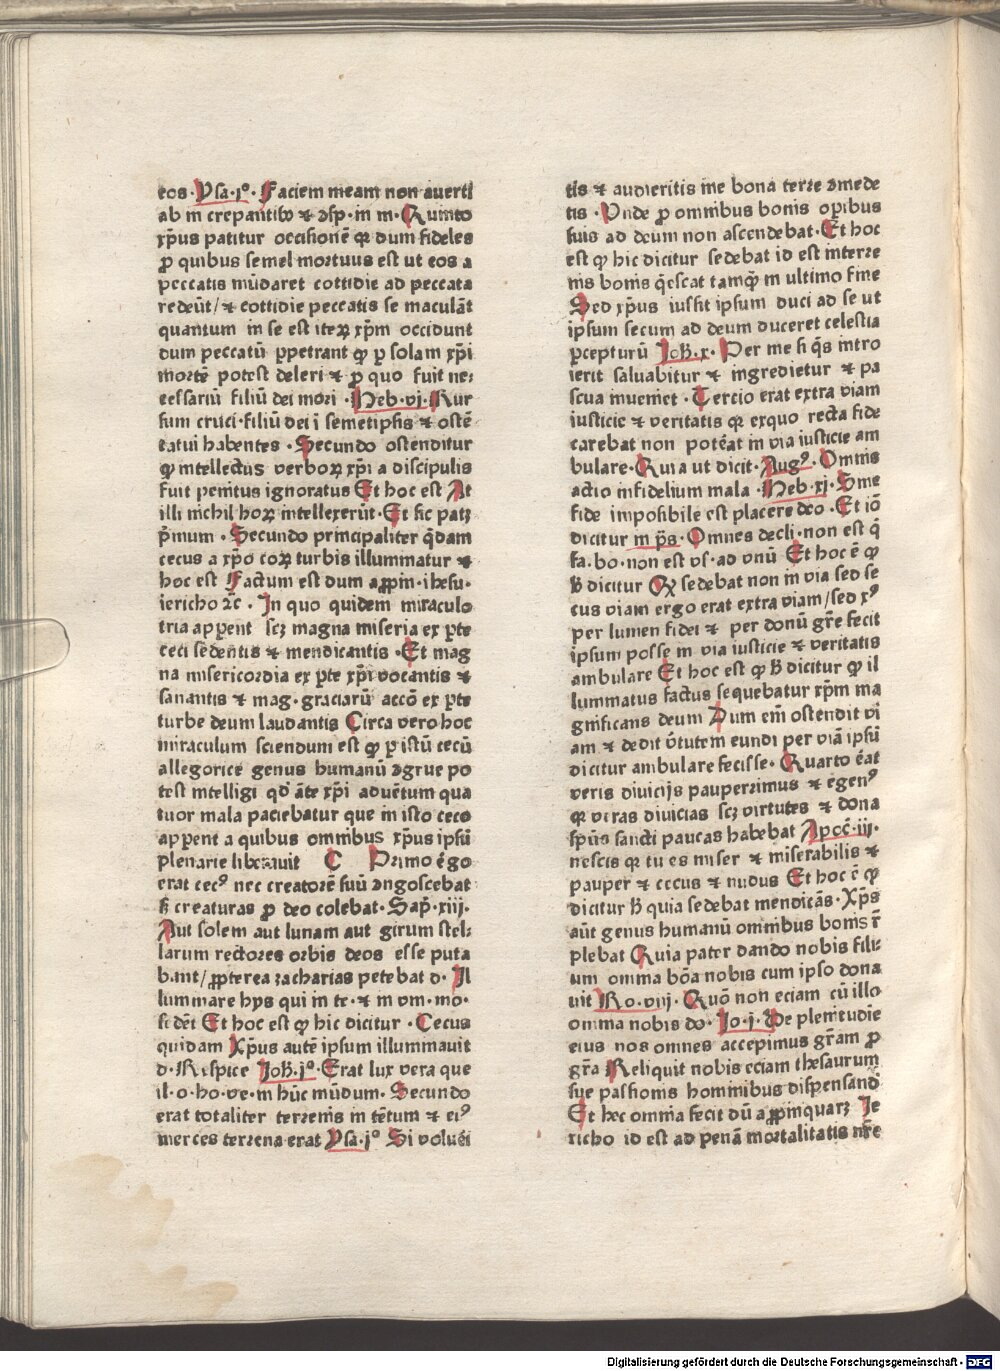 eos · Ysa · jº · Faciem meam non auerti
ab in crepantibꝯ ⁊ ↄsp · in m · Quinto
xp̄us patitur occisionē qꝛ dum fideles
ꝓ quibus semel mortuus est ut eos a
peccatis mūdaret cottidie ad peccata
redeūt / ⁊ cottidie peccatis se maculāt
quantum in se est iteꝝ xp̄m occidunt
dum peccatū ꝑpetrant qꝫ ꝑ solam xp̄i
mortē potest deleri ⁊ ꝓ quo fuit ne⸗
cessariū filiū dei mori · Heb · vj · Rur
sum cruci · filiū dei ī semetipsis ⁊ ostē
tatui habentes · Secundo ostenditur
qꝫ intellectus verboꝝ xp̄i a discipulis
fuit penitus ignoratus Et hoc est At
illi nichil hoꝝ intellexerūt · Et sic patꝫ
p̄mum · Secundo principaliter q̄dam
cecus a xp̄o coꝝ turbis illuminatur ⁊
hoc est Factum est dum aꝓpin · ihesu ·
iericho ⁊c̄ · In quo quidem miraculo
tria apparent scꝫ magna miseria ex ꝑte
ceci sedentis ⁊ mendicantis · Et mag
na misericordia ex ꝑte xp̄i vocantis ⁊
sanantis ⁊ mag · graciarū accō ex ꝑte
turbe deum laudantis Circa vero hoc
miraculum sciendum est qꝫ ꝑ istū cecū
allegorice genus humanū ↄgrue po
test intelligi qd̄ āte xp̄i aduētum qua
tuor mala paciebatur que in isto ceco
apparent a quibus omnibus xp̄us ipsū
plenarie liberauit C Primo ḡo
erat cecꝰ nec creatorē suū ↄngoscebat
sꝫ creaturas ꝓ deo colebat · Sap̄ · xiij ·
Aut solem aut lunam aut girum stel⸗
larum rectores orbis deos esse puta
bant / ꝓpterea zacharias petebat d · Il
luminare hys qui in te · ⁊ in vm · mo ·
sedēt Et hoc est qꝫ hic dicitur · Cecus
quidam Xp̄us autē ipsum illuminauit
d · Respice Joh̄ · jº · Erat lux vera que
il · o · ho · ve · in hūc mūdum · Secundo
erat totaliter terrenis in tētum ⁊ eiꝰ
merces terrena erat Ysa · jº Si volueri
tis ⁊ audieritis me bona terre ↄmede
tis · Vnde ꝓ omnibus bonis operibus
suis ad deum non ascendebat · Et hoc
est qꝫ hic dicitur sedebat id est in terre
nis bonis q̄escat tamqꝫ in ultimo fine
Sed xp̄us iussit ipsum duci ad se ut
ipsum secum ad deum duceret celestia
ꝑcepturū Joh̄ · x · Per me si q̄s intro
ierit saluabitur ⁊ ingredietur ⁊ pa
scua inueniet · Tercio erat extra viam
iusticie ⁊ veritatis qꝛ ex quo recta fide
carebat non poterat in via iusticie am
bulare · Quia ut dicit · Augꝰ · Omnis
actio infidelium mala · Heb · xj · Sine
fide impossibile est placere deo · Et iō
dicitur in p̄s · Omnes decli · non est q̄
fa · bo · non est vs · ad vnū Et hoc ē qꝫ
h̄ dicitur Qꝫ sedebat non in via sed se
cus viam ergo erat extra viam / sed xꝰ
per lumen fidei ⁊ per donū gr̄e fecit
ipsum posse in via iusticie ⁊ veritatis
ambulare Et hoc est qꝫ h̄ dicitur qꝫ il
luminatus factus sequebatur xp̄m ma
gnificans deum Dum em̄ ostendit vi
am ⁊ dedit v̄tutem eundi per viā ipsū
dicitur ambulare fecisse · Quarto ērat
veris diuicijs pauperrimus ⁊ egenꝰ
qꝛ veras diuicias scꝫ virtutes ⁊ dona
sp̄us sancti paucas habebat Apoc̄ · iij ·
nescis qꝛ tu es miser ⁊ miserabilis ⁊
pauper ⁊ cecus ⁊ nudus Et hoc ē qꝫ
dicitur h̄ quia sedebat mendicās · Xp̄s
aūt genus humanū omnibus bonis r̄
plebat Quia pater dando nobis fili⸗
um omnia bōa nobis cum ipso dona
uit Ro · viij · Quō non eciam cū illo
omnia nobis do · Jo · j · De plenitudīe
eius nos omnes accepimus gr̄am ꝓ
gr̄a Reliquit nobis eciam thesaurum
sue passionis hominibus dispensand̄
Et hec omnia fecit dū aꝓpinquarꝫ Je
richo id est ad penā mortalitatis nr̄e
Digitalisierung gefördert durch die Deutsche Forschungsgemeinschaft - DFG